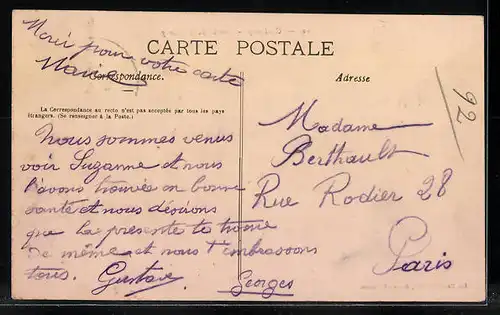 Merci pour votre carte
Marie
CARTE POSTALE
Correspondance.
Adresse
La Correspondance au recto n'est pas acceptée par tous les pays
étrangers. (Se renseigner à la Poste.)
Nous sommes venus
voir Suzanne et nous
l'avons trouvée en bonne
santé et nous désirons
que la présente te trouve
de même et nous t'embrassons
tous. Gustave
Georges
Madame
Berthault
Rue Rodier 28
Paris
92